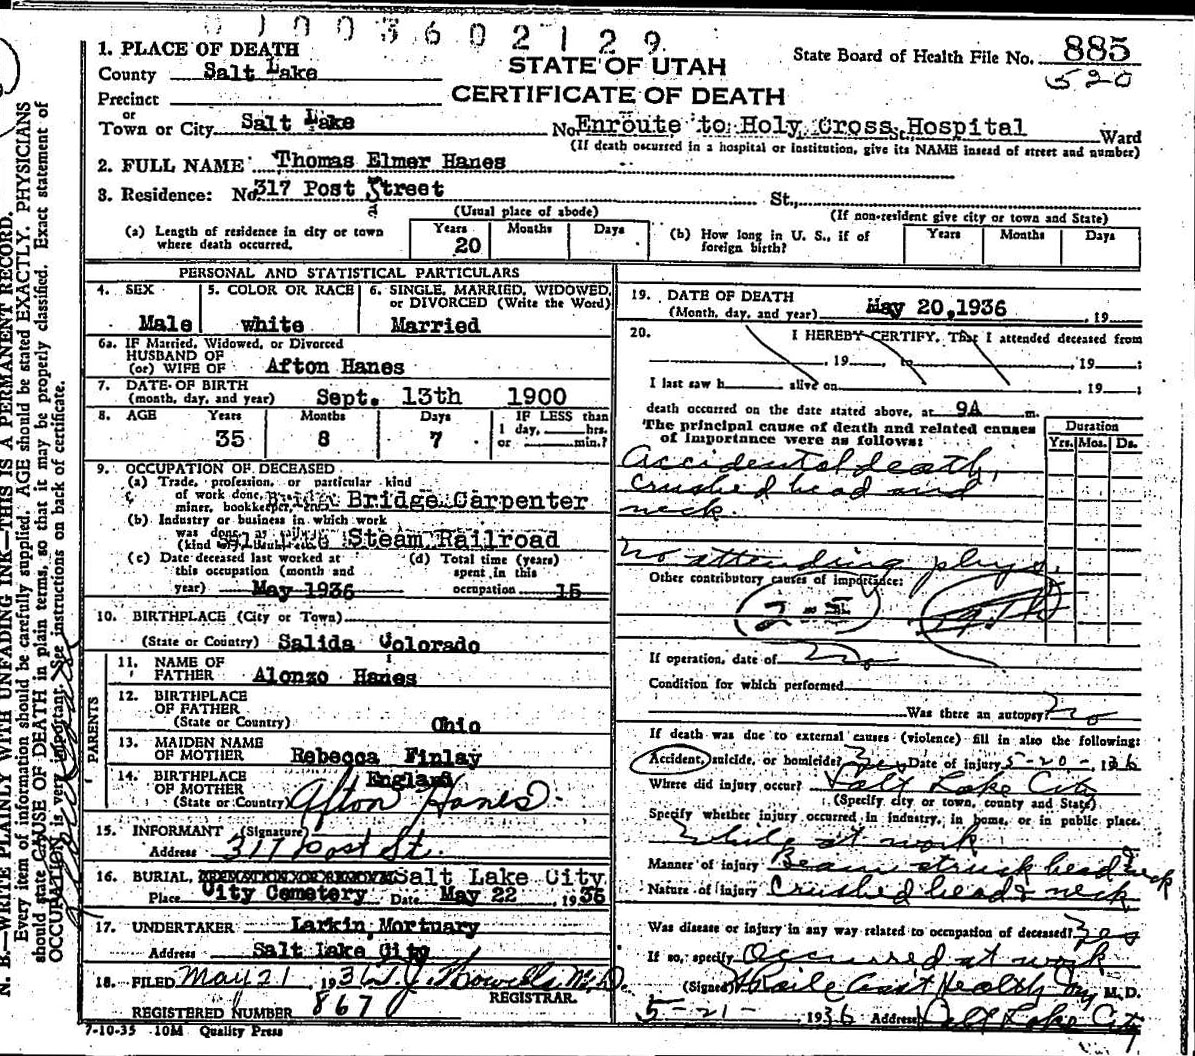 01003602129
1. PLACE OF DEATH
County Salt Lake
STATE OF UTAH
State Board of Health File No. 885
520
Precinct
CERTIFICATE OF DEATH
or
Town or City Salt Lake No. Enroute to Holy Cross Hospital St. Ward
(If death occurred in a hospital or institution, give its NAME instead of street and number)
2. FULL NAME Thomas Elmer Hanes
3. Residence: No. 317 Post Street St.,
(Usual place of abode) (If non-resident give city or town and State)
(a) Length of residence in city or town where death occurred. Years 20 Months Days
(b) How long in U. S., if of foreign birth? Years Months Days
PERSONAL AND STATISTICAL PARTICULARS
4. SEX Male
5. COLOR OR RACE white
6. SINGLE, MARRIED, WIDOWED, or DIVORCED (Write the Word) Married
6a. IF Married, Widowed, or Divorced
HUSBAND OF
(or) WIFE OF Afton Hanes
7. DATE OF BIRTH
(month, day, and year) Sept. 13th 1900
8. AGE Years 35 Months 8 Days 7 IF LESS than 1 day, hrs. or min.?
9. OCCUPATION OF DECEASED
(a) Trade, profession, or particular kind
of work done, Bridge Carpenter
miner, bookkeeper,
(b) Industry or business in which work
was done, Steam Railroad
(c) Date deceased last worked at
this occupation (month and
year) May 1936
(d) Total time (years)
spent in this
occupation 15
10. BIRTHPLACE (City or Town)
(State or Country) Salida Colorado
PARENTS
11. NAME OF
FATHER Alonzo Hanes
12. BIRTHPLACE
OF FATHER
(State or Country) Ohio
13. MAIDEN NAME
OF MOTHER Rebecca Finlay
14. BIRTHPLACE England
OF MOTHER
(State or Country)
15. INFORMANT (Signature) Afton Hanes
Address 317 Post St.
16. BURIAL, Salt Lake City
Place City Cemetery Date May 22, 1936
17. UNDERTAKER Larkin Mortuary
Address Salt Lake City
18. FILED May 21, 1936 T. J. Howells M.D.
REGISTRAR.
REGISTERED NUMBER 867
7-10-35 10M Quality Press
19. DATE OF DEATH
(Month, day, and year) May 20, 1936, 19
20. I HEREBY CERTIFY, That I attended deceased from
, 19 to , 19 ;
I last saw h alive on , 19 ;
death occurred on the date stated above, at 9A m.
The principal cause of death and related causes
of importance were as follows:
Duration
Yrs. Mos. Ds.
Accidental death,
crushed head and
neck.
No attending phys.
Other contributory causes of importance:
If operation, date of No
Condition for which performed
Was there an autopsy? No
If death was due to external causes (violence) fill in also the following:
Accident, suicide, or homicide? Yes Date of injury 5-20-, 1936
Where did injury occur? Salt Lake City
(Specify city or town, county and State)
Specify whether injury occurred in industry, in home, or in public place.
While at work
Manner of injury Beam struck head & neck
Nature of injury Crushed head & neck
Was disease or injury in any way related to occupation of deceased? Yes
If so, specify Occurred at work
(Signed) Asst Health M. D.
5-21-, 1936 Address Salt Lake City
N. B.—WRITE PLAINLY WITH UNFADING INK—THIS IS A PERMANENT RECORD.
Every item of information should be carefully supplied. AGE should be stated EXACTLY. PHYSICIANS
should state CAUSE OF DEATH in plain terms, so that it may be properly classified. Exact statement of
OCCUPATION is very important. See instructions on back of certificate.